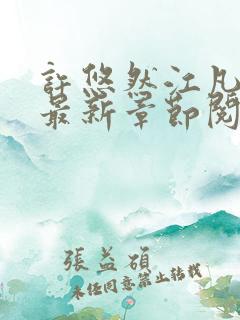 許悠然江凡
最新章節閱
張益碩
未經同意禁止轉載